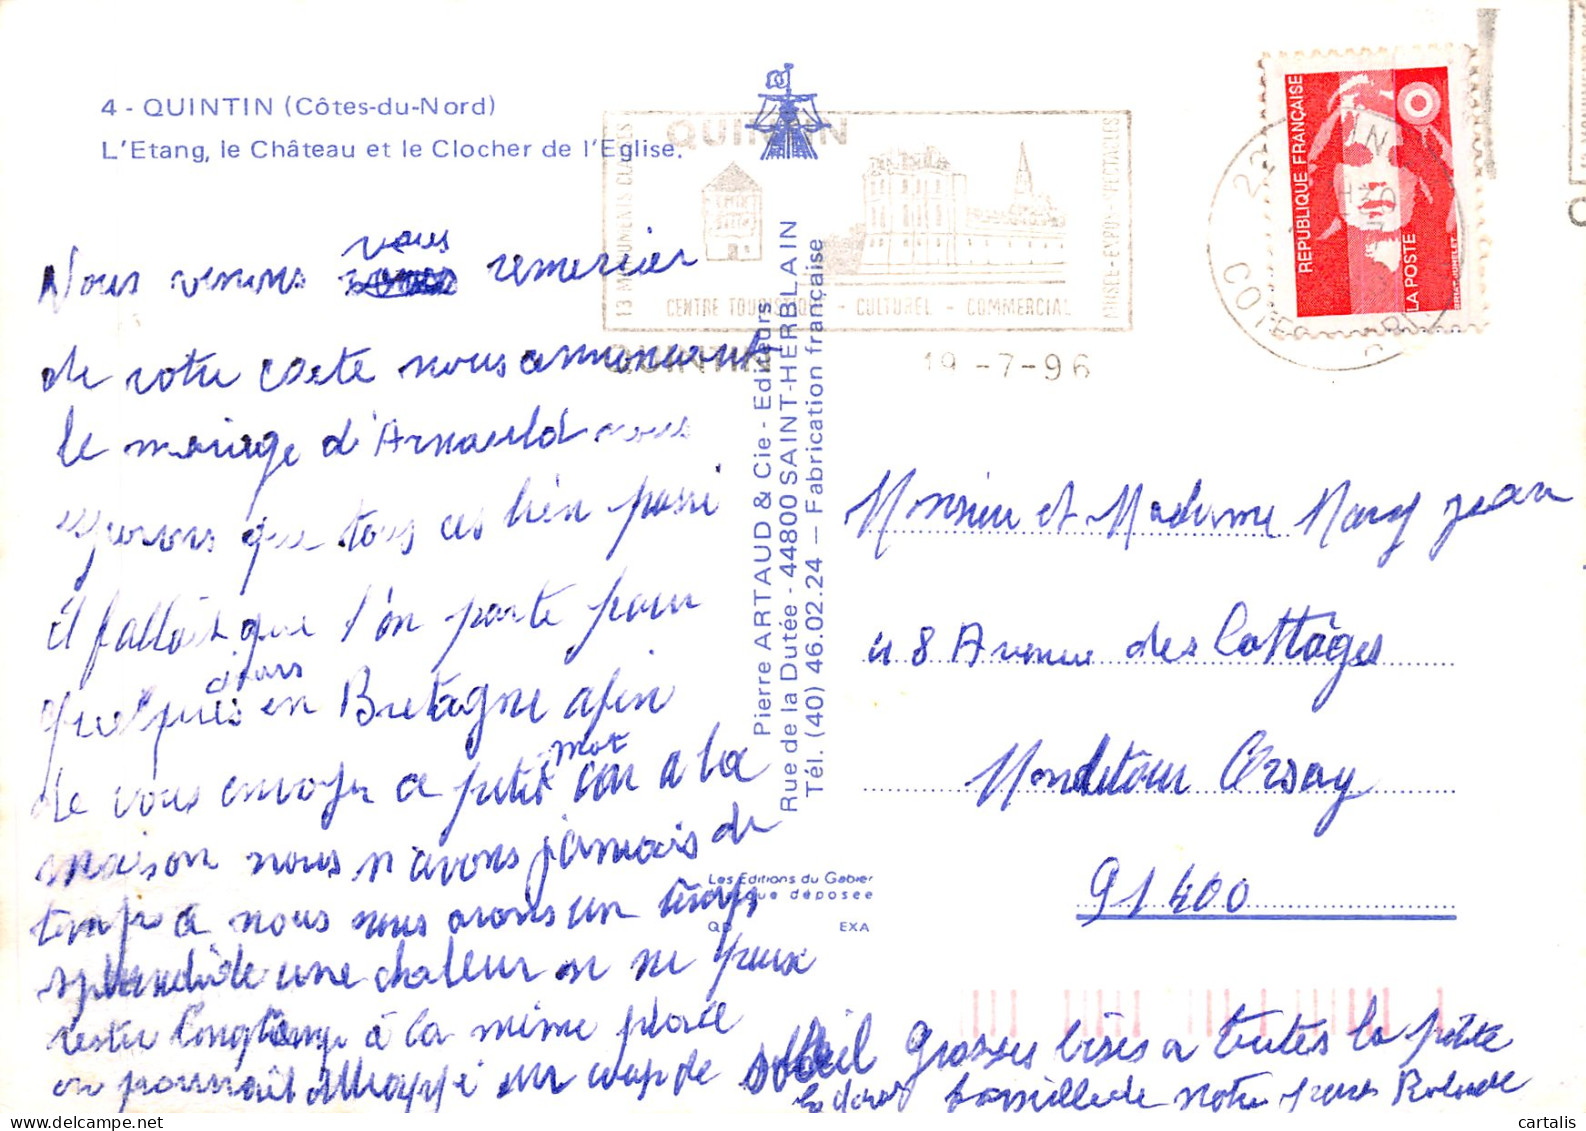 4 - QUINTIN (Côtes-du-Nord)
L'Etang, le Château et le Clocher de l'Eglise.
QUINTIN
13 MONUMENTS CLASSES
MUSEE-EXPOS-SPECTACLES
CENTRE TOURISTIQUE - CULTUREL - COMMERCIAL
QUINTIN
19 -7-96
22
COTES
REPUBLIQUE FRANÇAISE
LA POSTE
Pierre ARTAUD & Cie - Editeurs
Rue de la Dutée - 44800 SAINT-HERBLAIN
Tél. (40) 46.02.24 — Fabrication française
Les Editions du Gabier
déposée
EXA
Nous venons vous remercier
de votre carte nous annoncant
le mariage d'Arnauld nous
esperons que tous ces bien passi
il fallait que l'on parte pour
quelques jours en Bretagne afin
de vous envoyer a petit mot car a la
maison nous n'avons jamais de
temps a nous nous avons un temps
splendide une chaleur on ne peux
rester longtemps à la même place
on pourrait attrappé un coup de soleil
Grosses bises a toutes la petite
famille de notre part Rolande
Monsieur et Madame Marcy Jean
48 Avenue des Cottages
Mondetour Orsay
91400